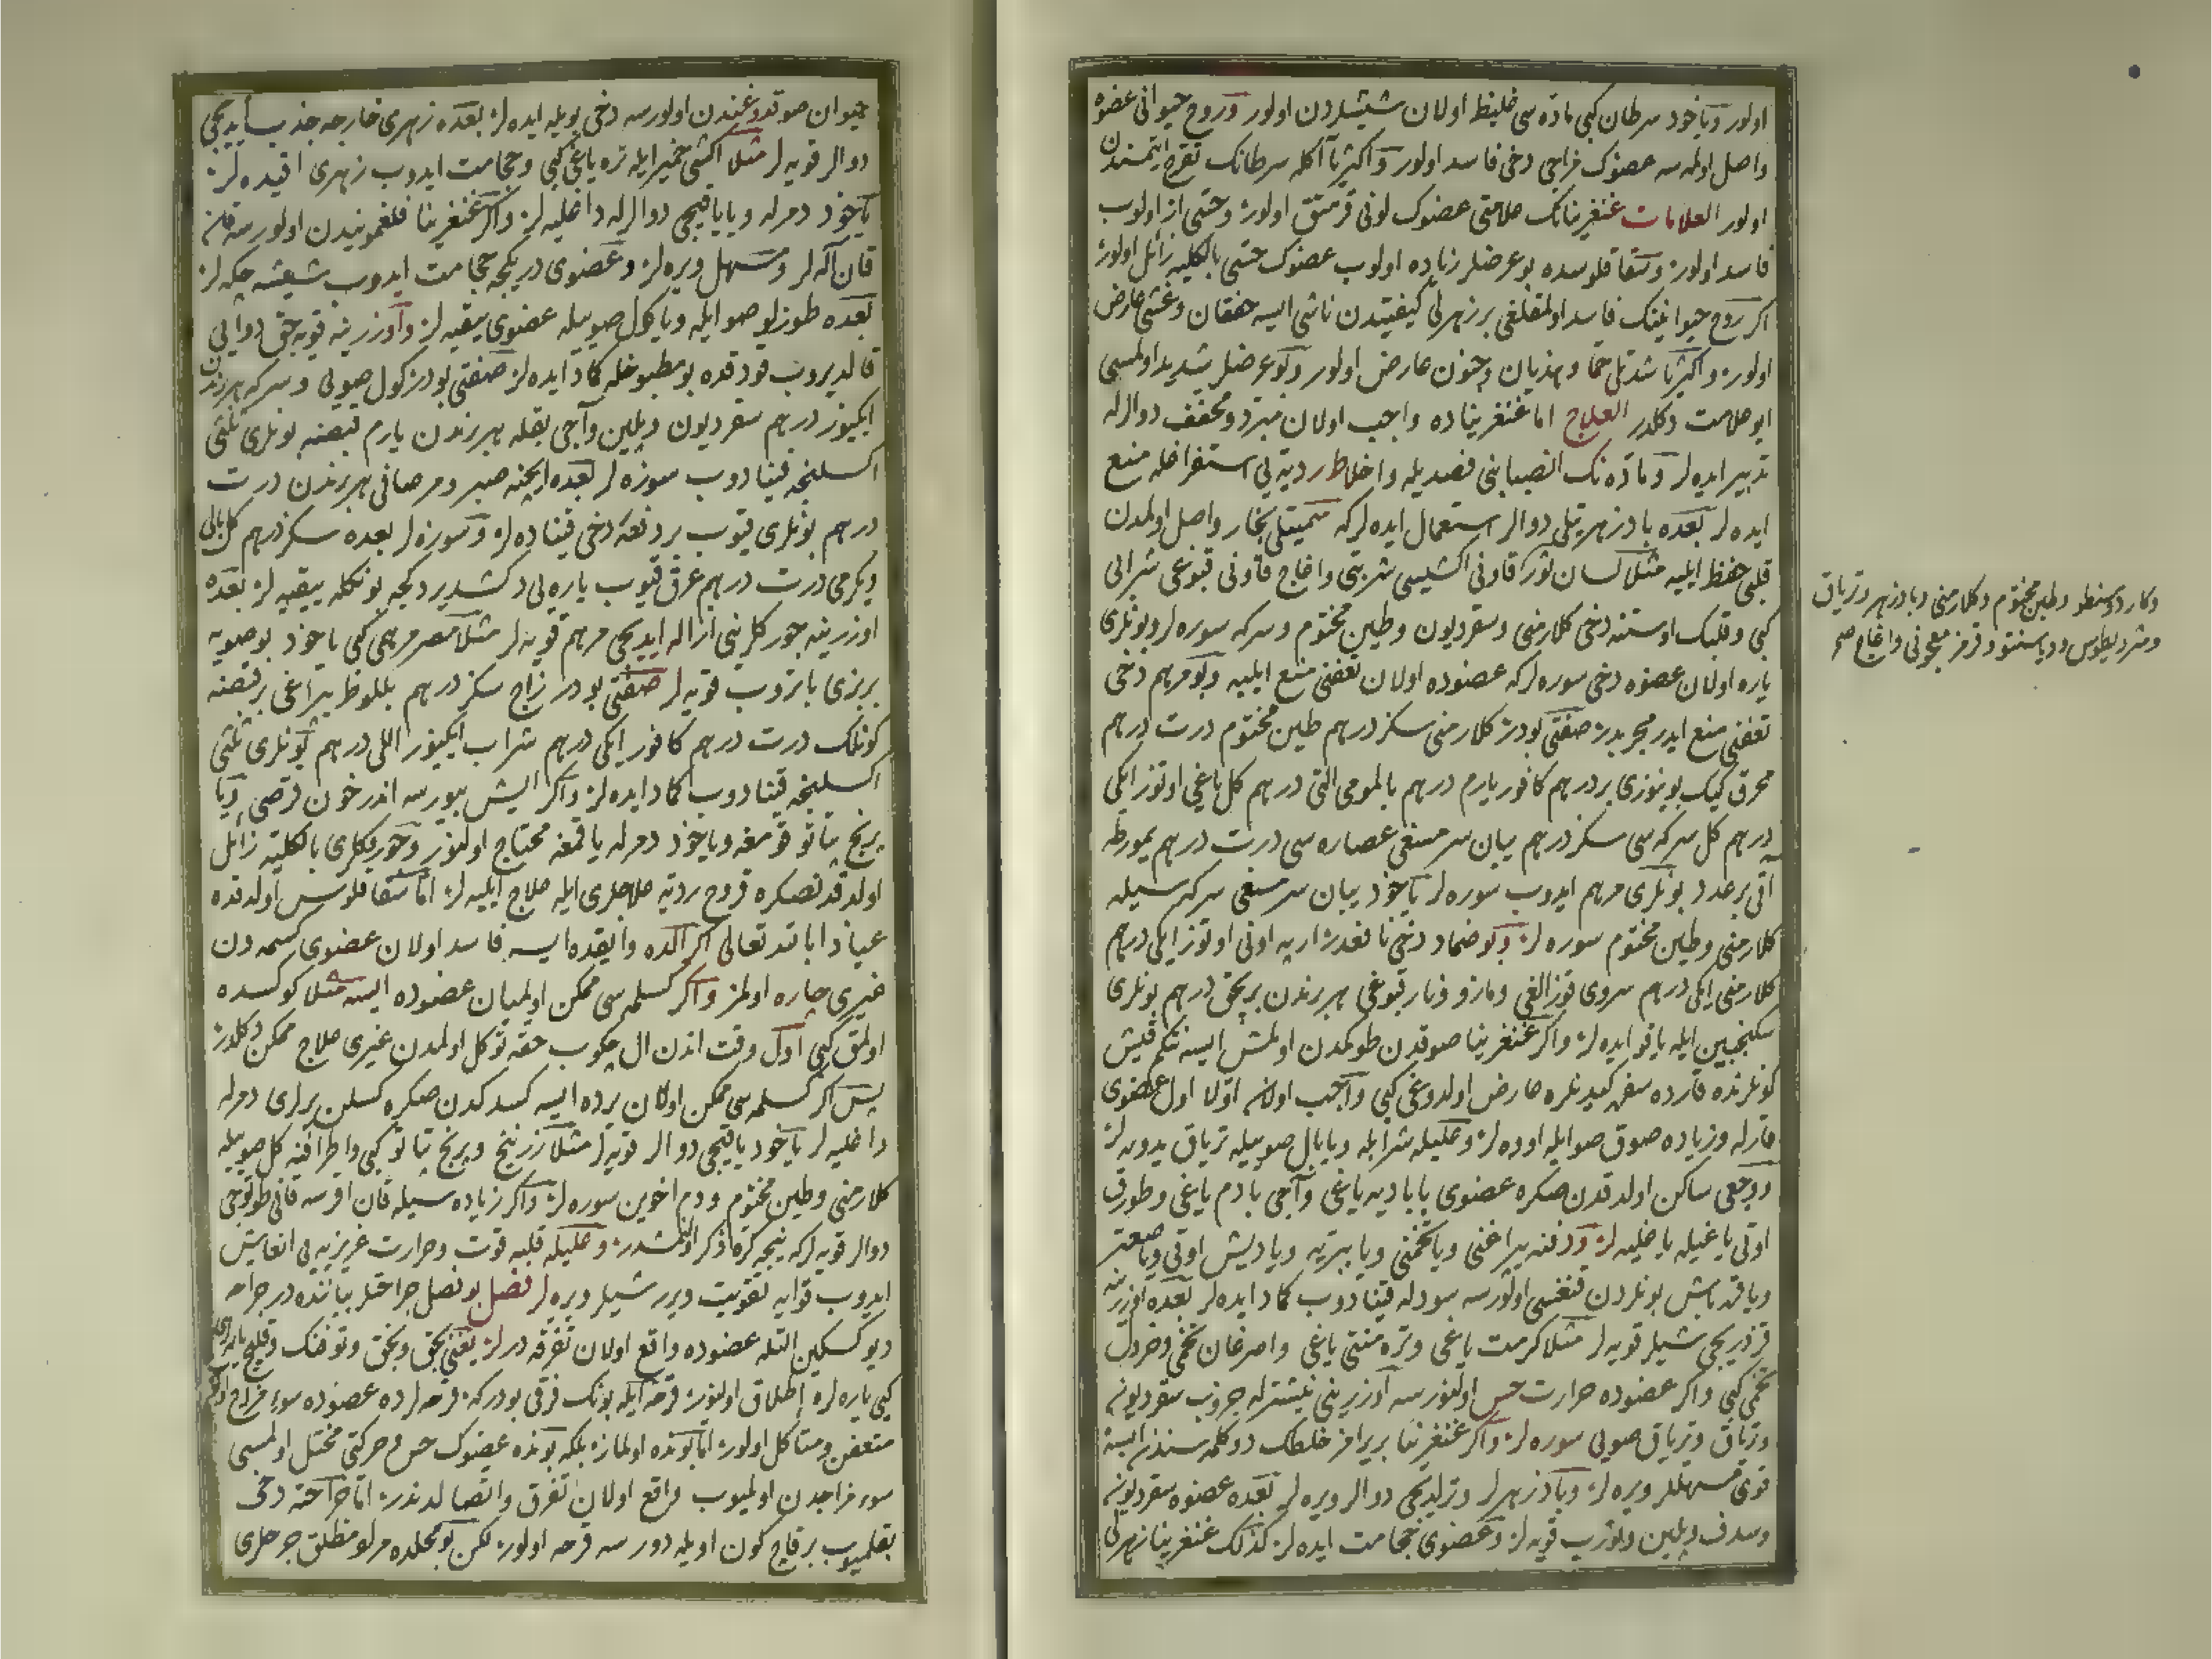 اولور ویاخود سرطان کبی مادّه سی غلیظ اولان شیشلردن اولور و روح حیوانی عضوه
واصل اولمسه عضوک مزاجی دخی فاسد اولور و اکثریا آکله سرطانک تقرح ایتمسندن
اولور العلامات غنغرینانک علامتی عضوک لونی قرمتق اولور و حسّی از اولوب
فاسد اولور و سقاقلوسده بو عرضلر زیاده اولوب عضوک حسّی بالکلیه زائل اولور
اکر روح حیوانینک فاسد اولمقلغی بر زهرلی کیفیتدن ناشی ایسه خفقان و غشی عارض
اولور و اکثریا شدتلی حمّا و هذیان و جنون عارض اولور و بو عرضلر شدید اولمسی
ایو علامت دکلدر العلاج اما غنغریناده واجب اولان مبرّد و مجفف دوالرله
تدبیر ایده لر و مادّه نک انصبابنی فصدیله و اخلاط ردیّه یی استفراغله منع
ایده لر بعده بادزهریتلی دوالر استعمال ایده لرکه سمیتلی بخار واصل اولمدن
قلبی حفظ ایلیه مثلا لسان ثور قاونی اکشیسی شربتی و اغاج قاونی قبوغی شرابی
کبی و قلبک اوستنه دخی کلارمنی و سقردیون و طین مختوم و سرکه سوره لر و بونلری
یاره اولان عضوه دخی سوره لرکه عضوده اولان تعفنی منع ایلیه و بو مرهم دخی
تعفنی منع ایدر مجربدر صفتی بودر کلارمنی سکز درهم طین مختوم درت درهم
محرق کیک بوینوزی بر درهم کافور یارم درهم بالمومی التی درهم کل یاغی اوتوز ایکی
درهم کل سرکه سی سکز درهم یبان سرمسغی عصاره سی درت درهم یمورطه
آقی بر عدد بونلری مرهم ایدوب سوره لر یاخود یبان سرمسغی سرکه سیله
کلارمنی و طین مختوم سوره لر و بو ضماد دخی نافعدر ارپه اونی اوتوز ایکی درهم
کلارمنی ایکی درهم سروی قوزالغی و مازو و نار قبوغی هر برندن بر بچق درهم بونلری
سکنجبین ایله یاقو ایده لر و اکر غنغرینا صوقدن طوکمدن اولمش ایسه نتکم قیش
کونلرنده قارده سفر کیدنلره عارض اولدوغی کبی واجب اولان اوّلا اول عضوی
قارله و زیاده صوق صوایله اوده لر و علیله شرابله ویا بال صوییله تریاق یدوره لر
و وجعی ساکن اولدقدن صکره عضوی بابادیه یاغی و آجی بادم یاغی و طورق
اوتی یاغیله یاغلیه لر و دفنه یپراغنی ویا تخمنی ویا ببریه ویا دیش اوتی ویا صعتر
ویا قرباش بونلردن قنغسی اولورسه سودله قینادوب کماد ایده لر بعده اوزرینه
قزدریجی شیلر قویه لر مثلا کرمت یاغی و تره منتی یاغی و اصرغان تخمی و خردل
تخمی کبی و اکر عضوده حرارت حس اولنورسه اوزرینی نیشترله چزوب سقردیون
و تریاق و تریاق صویی سوره لر و اکر غنغرینا بر یرامز خلطک دوکلمسندن ایسه
قوی مسهللر ویره لر و بادزهرلر و ترلدیجی دوالر ویره لر بعده عضوه سقردیون
و سدف و پلین قویه لر و عضوی حجامت ایده لر کذلک غنغرینا زهرلی
و طین مختوم و کلارمنی و بادزهر و تریاق
و مثرودیطوس و دیاسنتو و قرمز معجونی و اغاج صح
حیوان صوقدوغندن اولورسه دخی بویله ایده لر بعده زهری خارجه جذب ایدیجی
دوالر قویه لر مثلا اکشی خمیر ایله تره یاغی کبی و حجامت ایدوب زهری اقیده لر
یاخود دمرله ویا یاقیجی دوالرله داغلیه لر و اکر غنغرینا فلغمونیدن اولورسه
قان آله لر و مسهل ویره لر و عضوی درینجه حجامت ایدوب شیشه چکه لر
بعده طوزلو صو ایله ویا کول صوییله عضوی ییقیه لر و اوزرینه قویه جق دوایی
قالدیروب قودقده بو مطبوخله کماد ایده لر صفتی بودر کول صویی و سرکه هر برندن
ایکیوز درهم سقردیون و پلین و آجی بقله هر برندن یارم قبضه بونلری ثلثی
اکسلنجه قینادوب سوزه لر بعده ایچنه صبر و مر صافی هر برندن درت
درهم بونلری قیوب بر دفعه دخی قیناده لر و سوزه لر بعده سکز درهم کل بالی
و یکرمی درت درهم عرق قیوب یاره یی دکشدیردکجه بونکله ییقیه لر بعده
اوزرینه چورکلرینی ازاله ایدیجی مرهم قویه لر مثلا مصر مرهمی کبی یاخود بو صویه
بر بزی باتروب قویه لر صفتی بودر زاج سکز درهم پللوط یپراغی بر قبضه
کونلک درت درهم کافور ایکی درهم شراب ایکیوز اللی درهم بونلری ثلثی
اکسلنجه قینادوب کماد ایده لر و اکر ایش بیورسه اندرخون قرصی ویا
برنج پتاتو قومغه ویاخود دمرله یاقمغه محتاج اولنور و چورکلکلری بالکلیه زائل
اولدقدنصکره قروح ردیه علاجلری ایله علاج ایلیه لر اما سقاقلوس اولدقده
عیاذا بالله تعالی اکر الده و ایقده ایسه فاسد اولان عضوی کسمه دن
غیری چاره اولمز و اکر کسلمه سی ممکن اولمیان عضوده ایسه مثلا کوکسده
اولمق کبی اول وقت اندن ال چکوب حقه توکل اولمدن غیری علاج ممکن دکلدر
پس اکر کسلمه سی ممکن اولان یرده ایسه کسدکدن صکره کسلن یرلری دمرله
داغلیه لر یاخود یاقیجی دوالر قویه لر مثلا زرنیخ و برنج پتاتو کبی و اطرافنه کل صوییله
کلارمنی و طین مختوم و دم اخوین سوره لر و اکر زیاده سیله قان اقرسه قانی طوتوجی
دوالر قویه لرکه نیجه کره ذکر اولنمشدر و علیله قلبه قوت و حرارت غریزیه یی انعاش
ایدوب قوایه تقویت ویرر شیلر ویره لر فصل بو فصل جراحتلر بیاننده در جراحه
دیو کسکین التله عضوده واقع اولان تفرقه درلر یعنی بچق و بچقی و توفنک و قلیج یاره لری
کبی یاره لره اطلاق اولنور قرحه ایله بونک فرقی بودرکه قرحه لرده عضوده سوء مزاج اولور
متعفن و متأکل اولور اما بونده اولماز بلکه بونده عضوک حس و حرکتی مختل اولمسی
سوء مزاجدن اولمیوب واقع اولان تفرق و اتصالدندر اما جراحته دخی
بقلمیوب بر قاچ کون اویله دورسه قرحه اولور لکن بو محلده مراد مطلق جرحلری